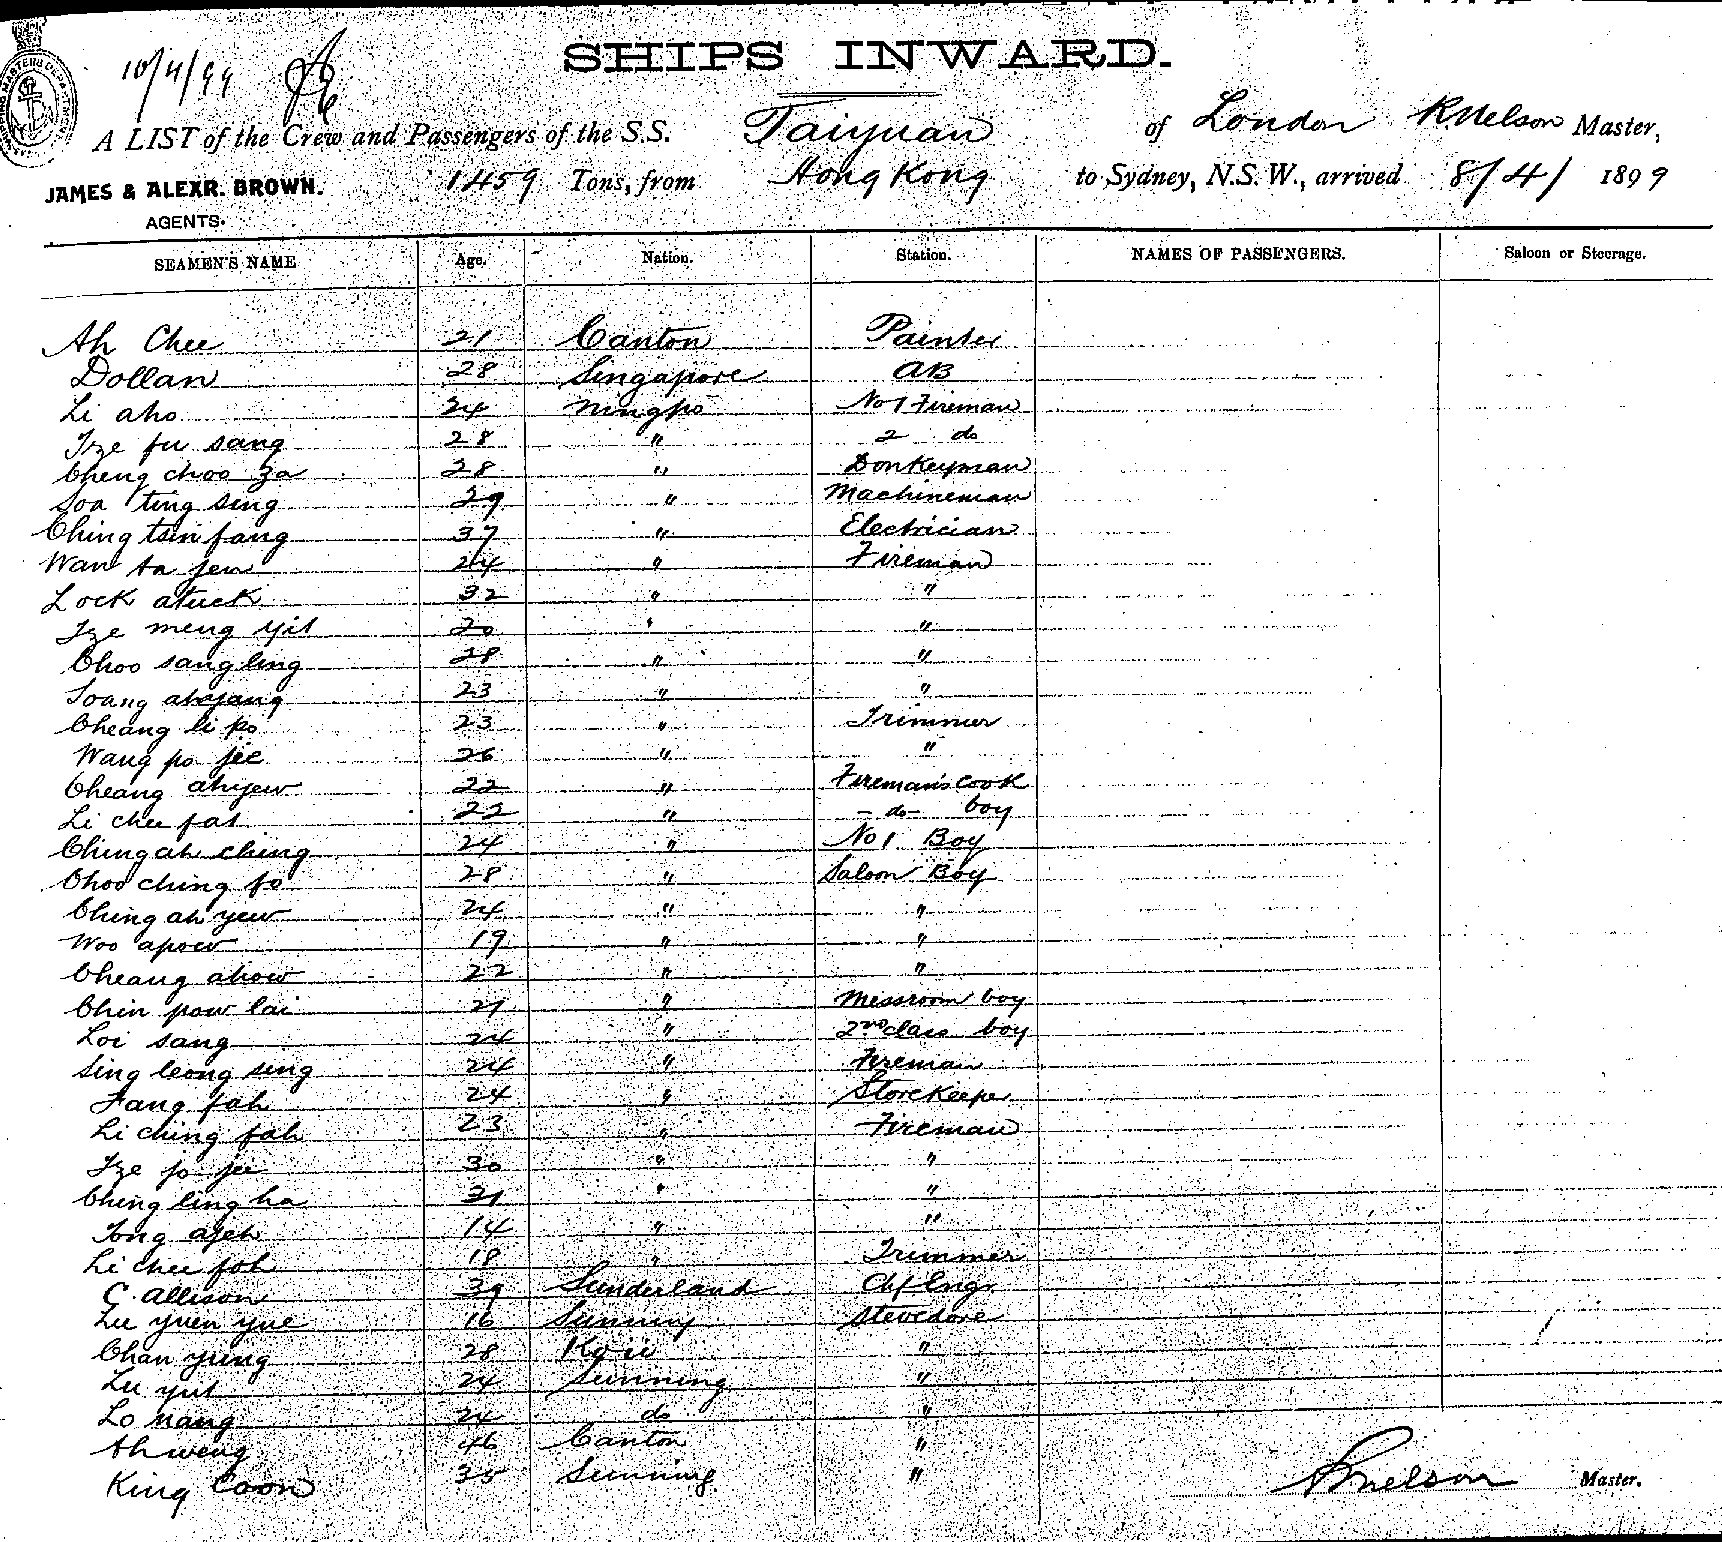 SHIPS INWARD.
10/4/99
A LIST of the Crew and Passengers of the S.S. Taiyuan of London R. Nelson Master,
JAMES & ALEXR. BROWN. 1459 Tons, from Hong Kong to Sydney, N.S.W., arrived 8/4/ 1899
AGENTS.
SEAMEN'S NAME Age. Nation. Station. NAMES OF PASSENGERS. Saloon or Steerage.
Ah Chee 21 Canton Painter
Dollan 28 Singapore AB
Li aho 24 Ningpo No 1 Fireman
Tze fu sang 28 " 2 do
Cheng choo za 28 " Donkeyman
Soa ting sing 29 " Machineman
Ching tsin fang 37 " Electrician
Wan ta jen 24 " Fireman
Lock atuck 32 " "
Tze meng yit 20 " "
Choo sang ling 28 " "
Soang ahyang 23 " "
Cheang li po 23 " Trimmer
Wang po jee 26 " "
Cheang ahyew 22 " Fireman's Cook
Li chee fat 22 " - do - boy
Ching ah ching 24 " No 1 Boy
Choo ching fo 28 " Saloon Boy
Ching ah yew 24 " "
Woo apoew 19 " "
Cheang ahow 22 " "
Chin pow lai 21 " Messroom boy
Loi sang 24 " 2nd class boy
Sing leong sing 24 " Fireman
Fang fah 24 " Storekeeper
Li ching fah 23 " Fireman
Tze jo jee 30 " "
Ching ling ha 21 " "
Tong ajeh 14 " "
Li chee foh 18 " Trimmer
C. Allison 39 Sunderland Chf Engr.
Lu yuen yue 16 Sunning Stevedore
Chan yung 28 "
Lu yut 24 Sunning "
Lo nang 24 do "
Ah weng 46 Canton "
King Coon 35 Sunning "
R Nelson Master.